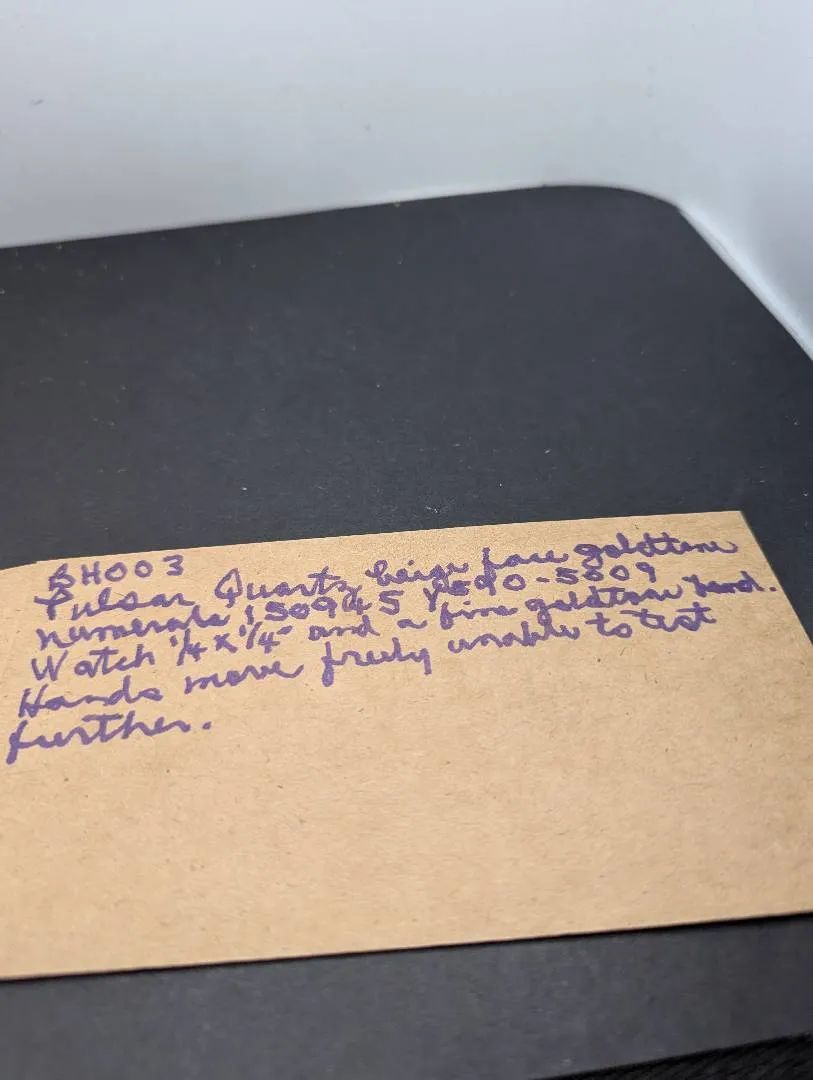 BH003
Pulsar Quartz beige face goldtone
numerals 150945 Y590-5009
Watch 1/4 x 1/4" and a fine goldtone band.
Hands move freely unable to test
further.